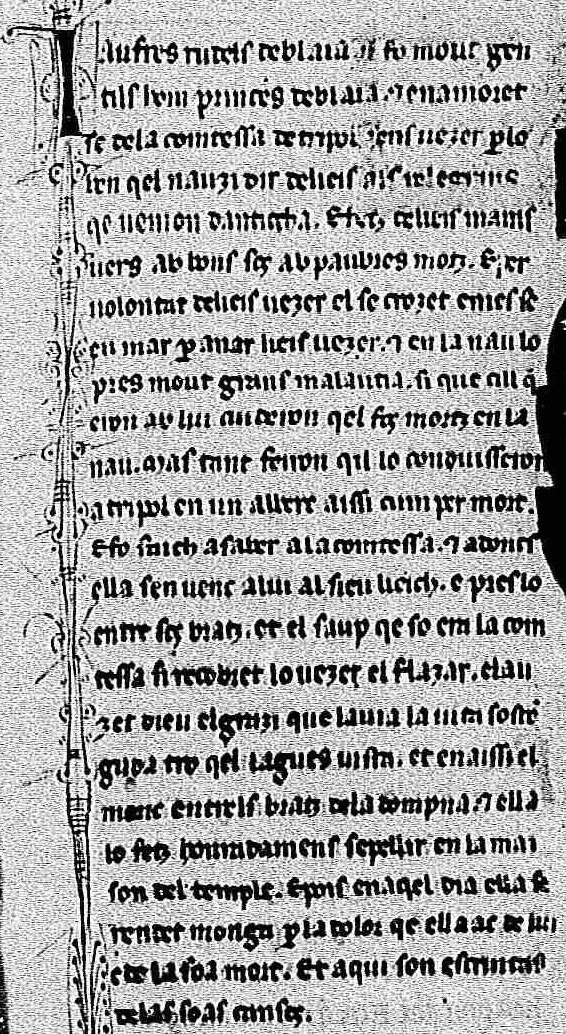 Jaufres rudels de blaia si fo mout gen
tils hom princes de blaia. ⁊ enamoret
se de la comtessa de tripol ses uezer p lo
ben qel nauzi dir deleis als pelegrins
qe uenion dantiocha. E fetz deleis mains
uers ab bons
sos ab paubres motz. E per
uolontat deleis uezer el se crozet e mes se
en mar p anar leis uezer. ⁊ en la nau lo
pres mout grans malautia. si que cill q
eron ab lui cuideron qel fos mortz en la
nau. Mas tant feiron qil lo conduisseron
a tripol en un alberc aissi cum per mort.
E fo faich a saber a la comtessa. ⁊ adoncs
ella sen uenc a lui al sieu lieich. e pres lo
entre sos bratz. et el saup qe so era la com
tessa si recobret lo uezer el flazar. e lau
zet dieu el grazi que lauia la uita soste
guda tro qel lagues uista. et en aissi el
moric entrels bratz de la dompna. ⁊ ella
lo fetz honradamens sepellir en la mai
son del temple. E pois en aqel dia ella se
rendet monga p la dolor qe ella ac de lui
e de la soa mort. Et aqui son escriutas
de las soas cansos.